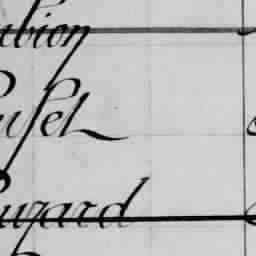 ubion
usel
uzard